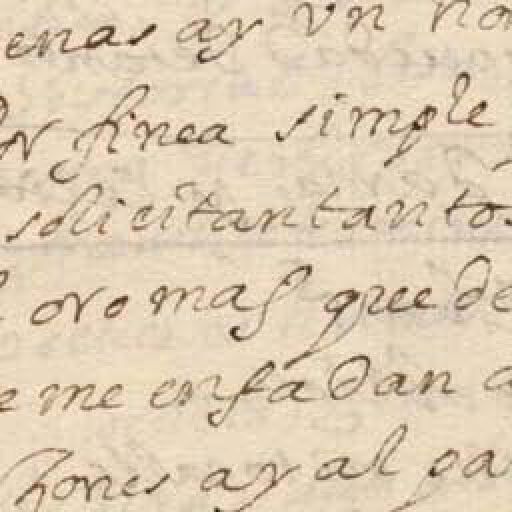 enas ay vn no
or finca simple
solicitan tantos
oro mas que de
e me enfadan a
Zones ay al ga